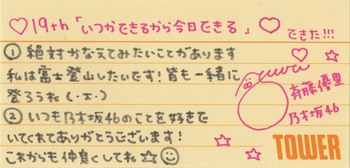 ♡19th「いつかできるから今日できる」♡
できた!!!
① 絶対かなえてみたいことがあります
私は富士登山したいです!皆も一緒に
登ろうね(・エ・)
② いつも乃木坂46のことを好きで
いてくれてありがとうございます!
これからも仲良くしてね☆☺
斉藤優里
乃木坂46
TOWER